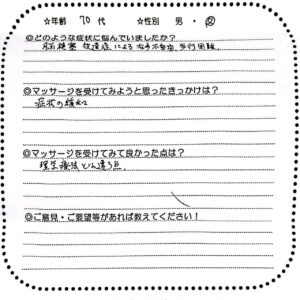 ☆年齢 70 代 ☆性別 男・女
◎どのような症状に悩んでいましたか？
脳梗塞 後遺症による右手不自由、歩行困難
◎マッサージを受けてみようと思ったきっかけは？
症状の緩和
◎マッサージを受けてみて良かった点は？
理学療法とは違う点
◎ご意見・ご要望等があれば教えてください！